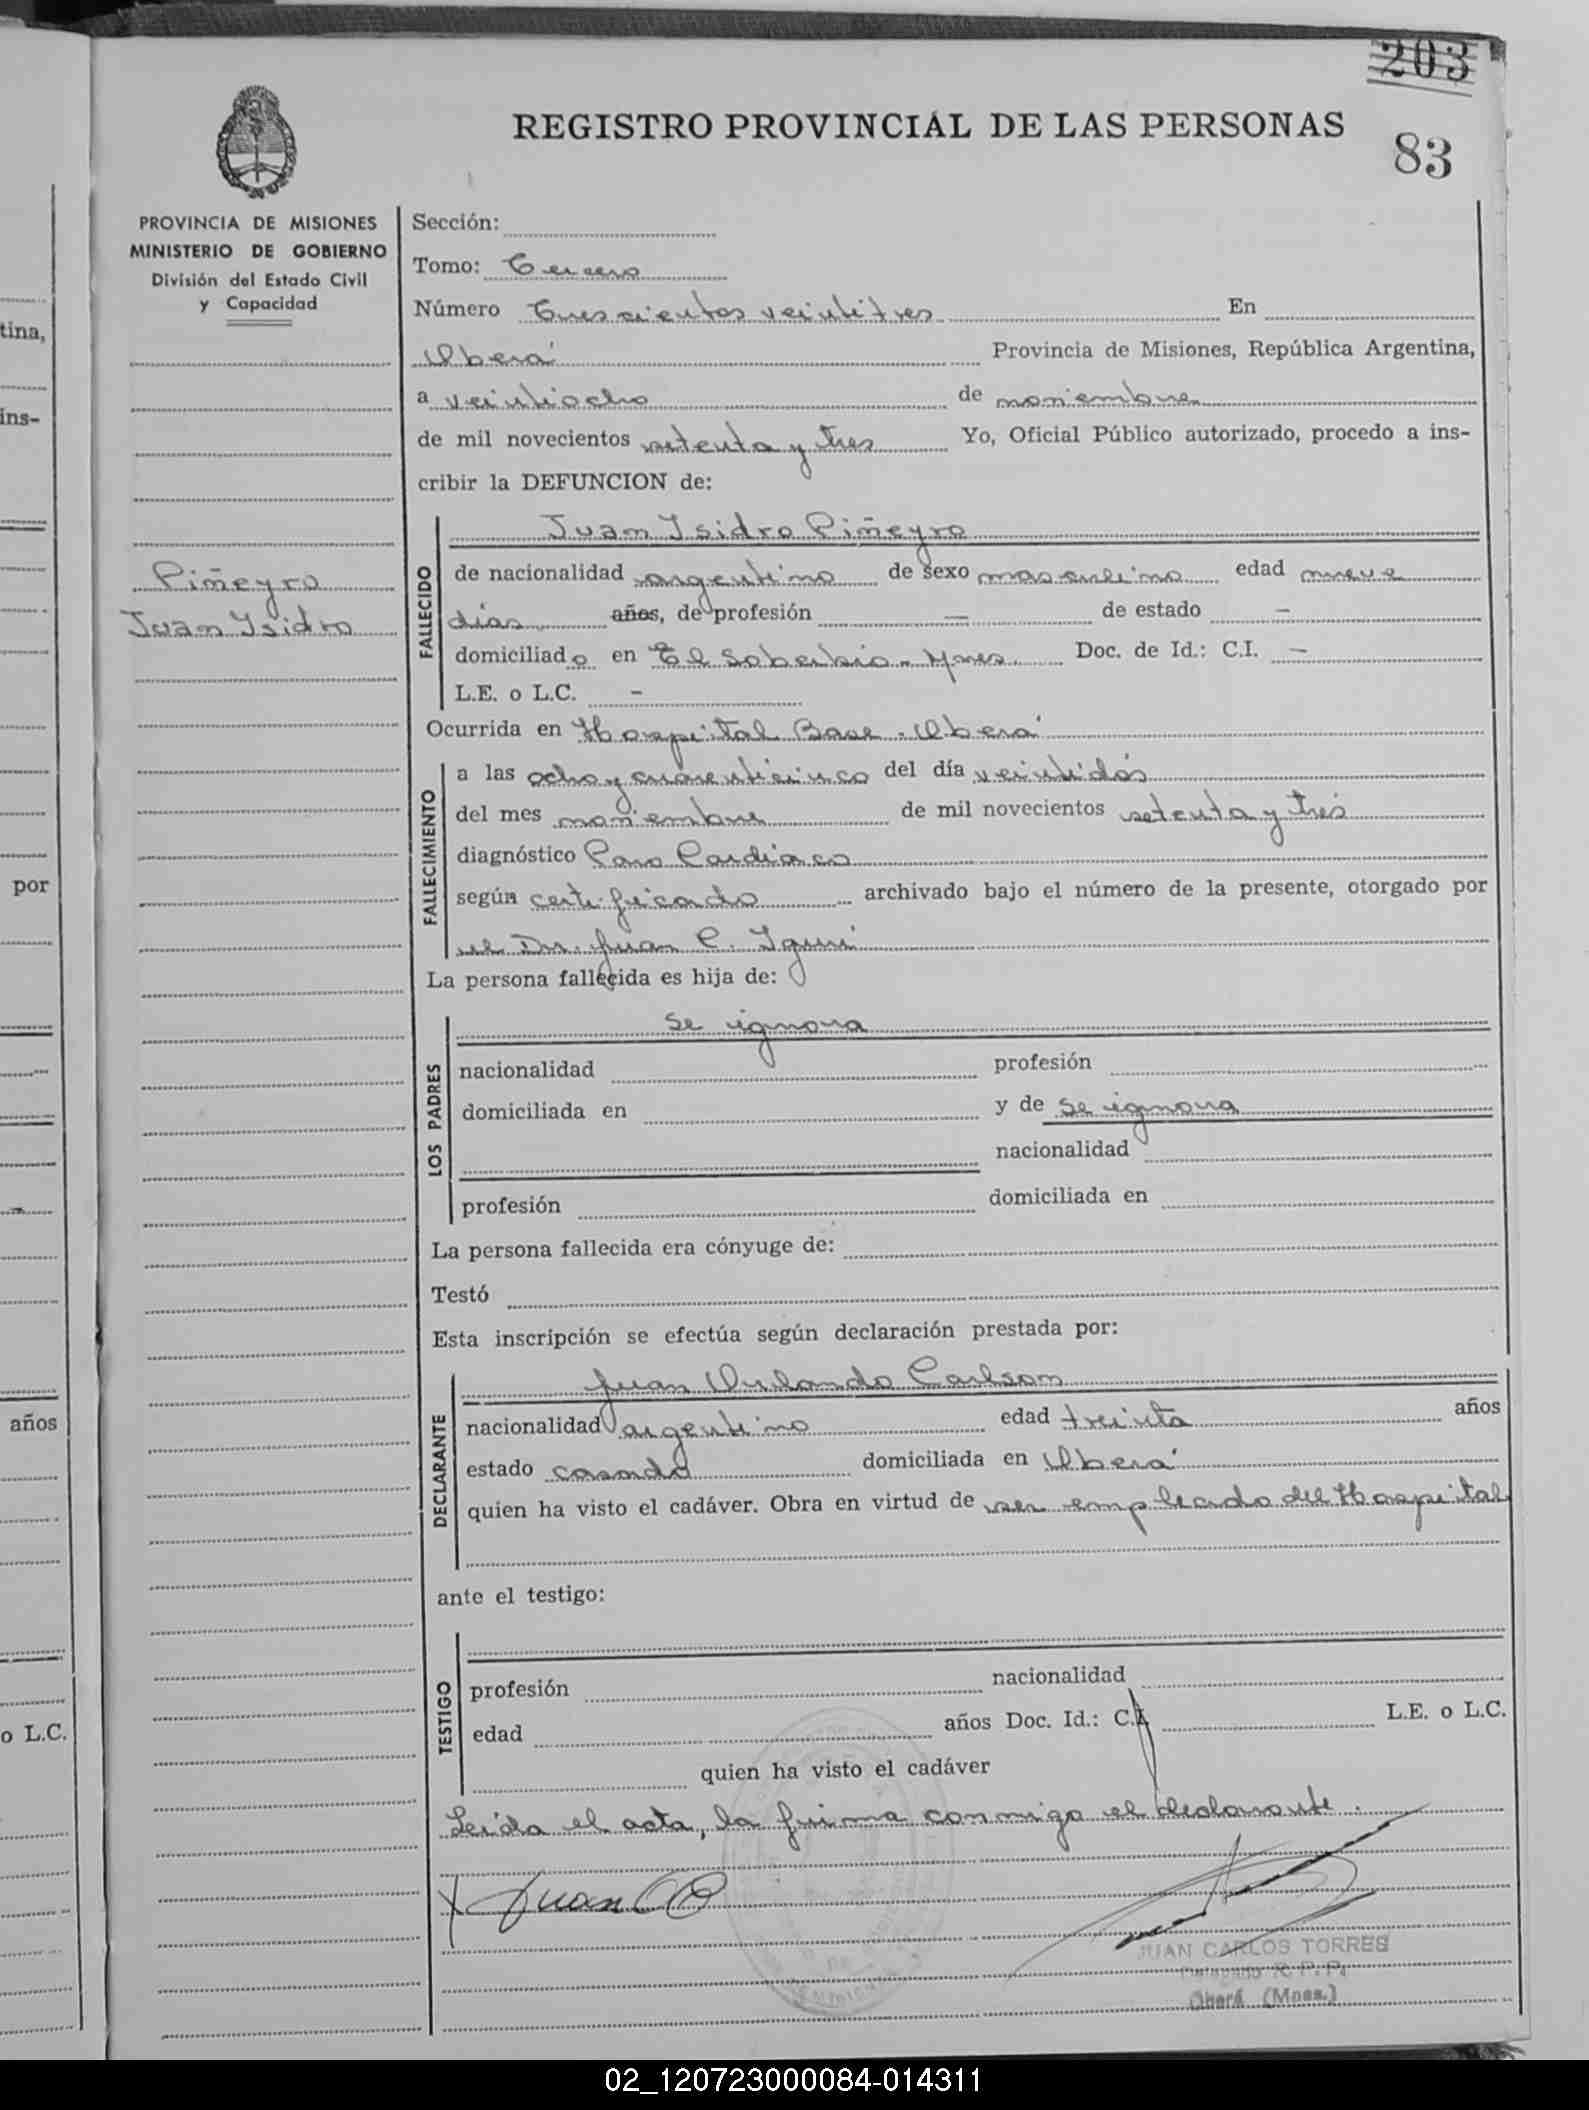 203
REGISTRO PROVINCIAL DE LAS PERSONAS
83
PROVINCIA DE MISIONES
MINISTERIO DE GOBIERNO
División del Estado Civil
y Capacidad
Piñeyro
Juan Isidro
Sección:
Tomo: Tercero
Número Trescientos veintitres En
Oberá Provincia de Misiones, República Argentina,
a veintiocho de noviembre
de mil novecientos setenta y tres Yo, Oficial Público autorizado, procedo a ins-
cribir la DEFUNCION de:
FALLECIDO
Juan Isidro Piñeyro
de nacionalidad argentino de sexo masculino edad nueve
días años, de profesión — de estado —
domiciliado en El Soberbio - Mnes. Doc. de Id.: C.I. —
L.E. o L.C. —
Ocurrida en Hospital Base - Oberá
FALLECIMIENTO
a las ocho y cuarenticinco del día veintidós
del mes noviembre de mil novecientos setenta y tres
diagnóstico Paro Cardíaco
según certificado archivado bajo el número de la presente, otorgado por
el Dr. Juan C.
La persona fallecida es hija de:
LOS PADRES
se ignora
nacionalidad profesión
domiciliada en y de se ignora
nacionalidad
profesión domiciliada en
La persona fallecida era cónyuge de:
Testó
Esta inscripción se efectúa según declaración prestada por:
DECLARANTE
Juan Orlando Carlson
nacionalidad argentino edad treinta años
estado casado domiciliada en Oberá
quien ha visto el cadáver. Obra en virtud de ser empleado del Hospital
ante el testigo:
TESTIGO
profesión nacionalidad
edad años Doc. Id.: C.I. L.E. o L.C.
quien ha visto el cadáver
Leída el acta, la firma conmigo el declarante.
Juan
JUAN CARLOS TORRES
Delegado R.P.P.
Oberá (Mnes.)
tina,
ins-
por
años
o L.C.
02_120723000084-014311